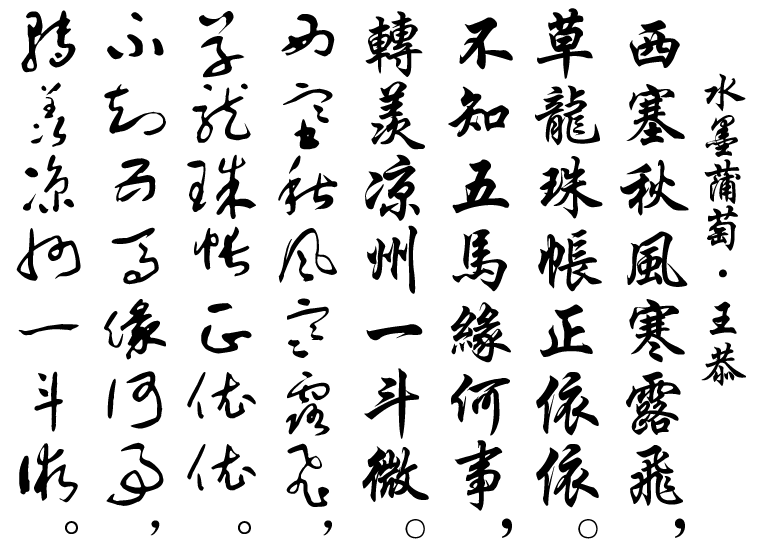 水墨蒲萄·王恭
西塞秋風寒露飛，
草龍珠帳正依依。
不知五馬緣何事，
轉羨凉州一斗微。
西塞秋風寒露飛，
草龍珠帳正依依。
不知五馬緣何事，
轉羨凉州一斗微。